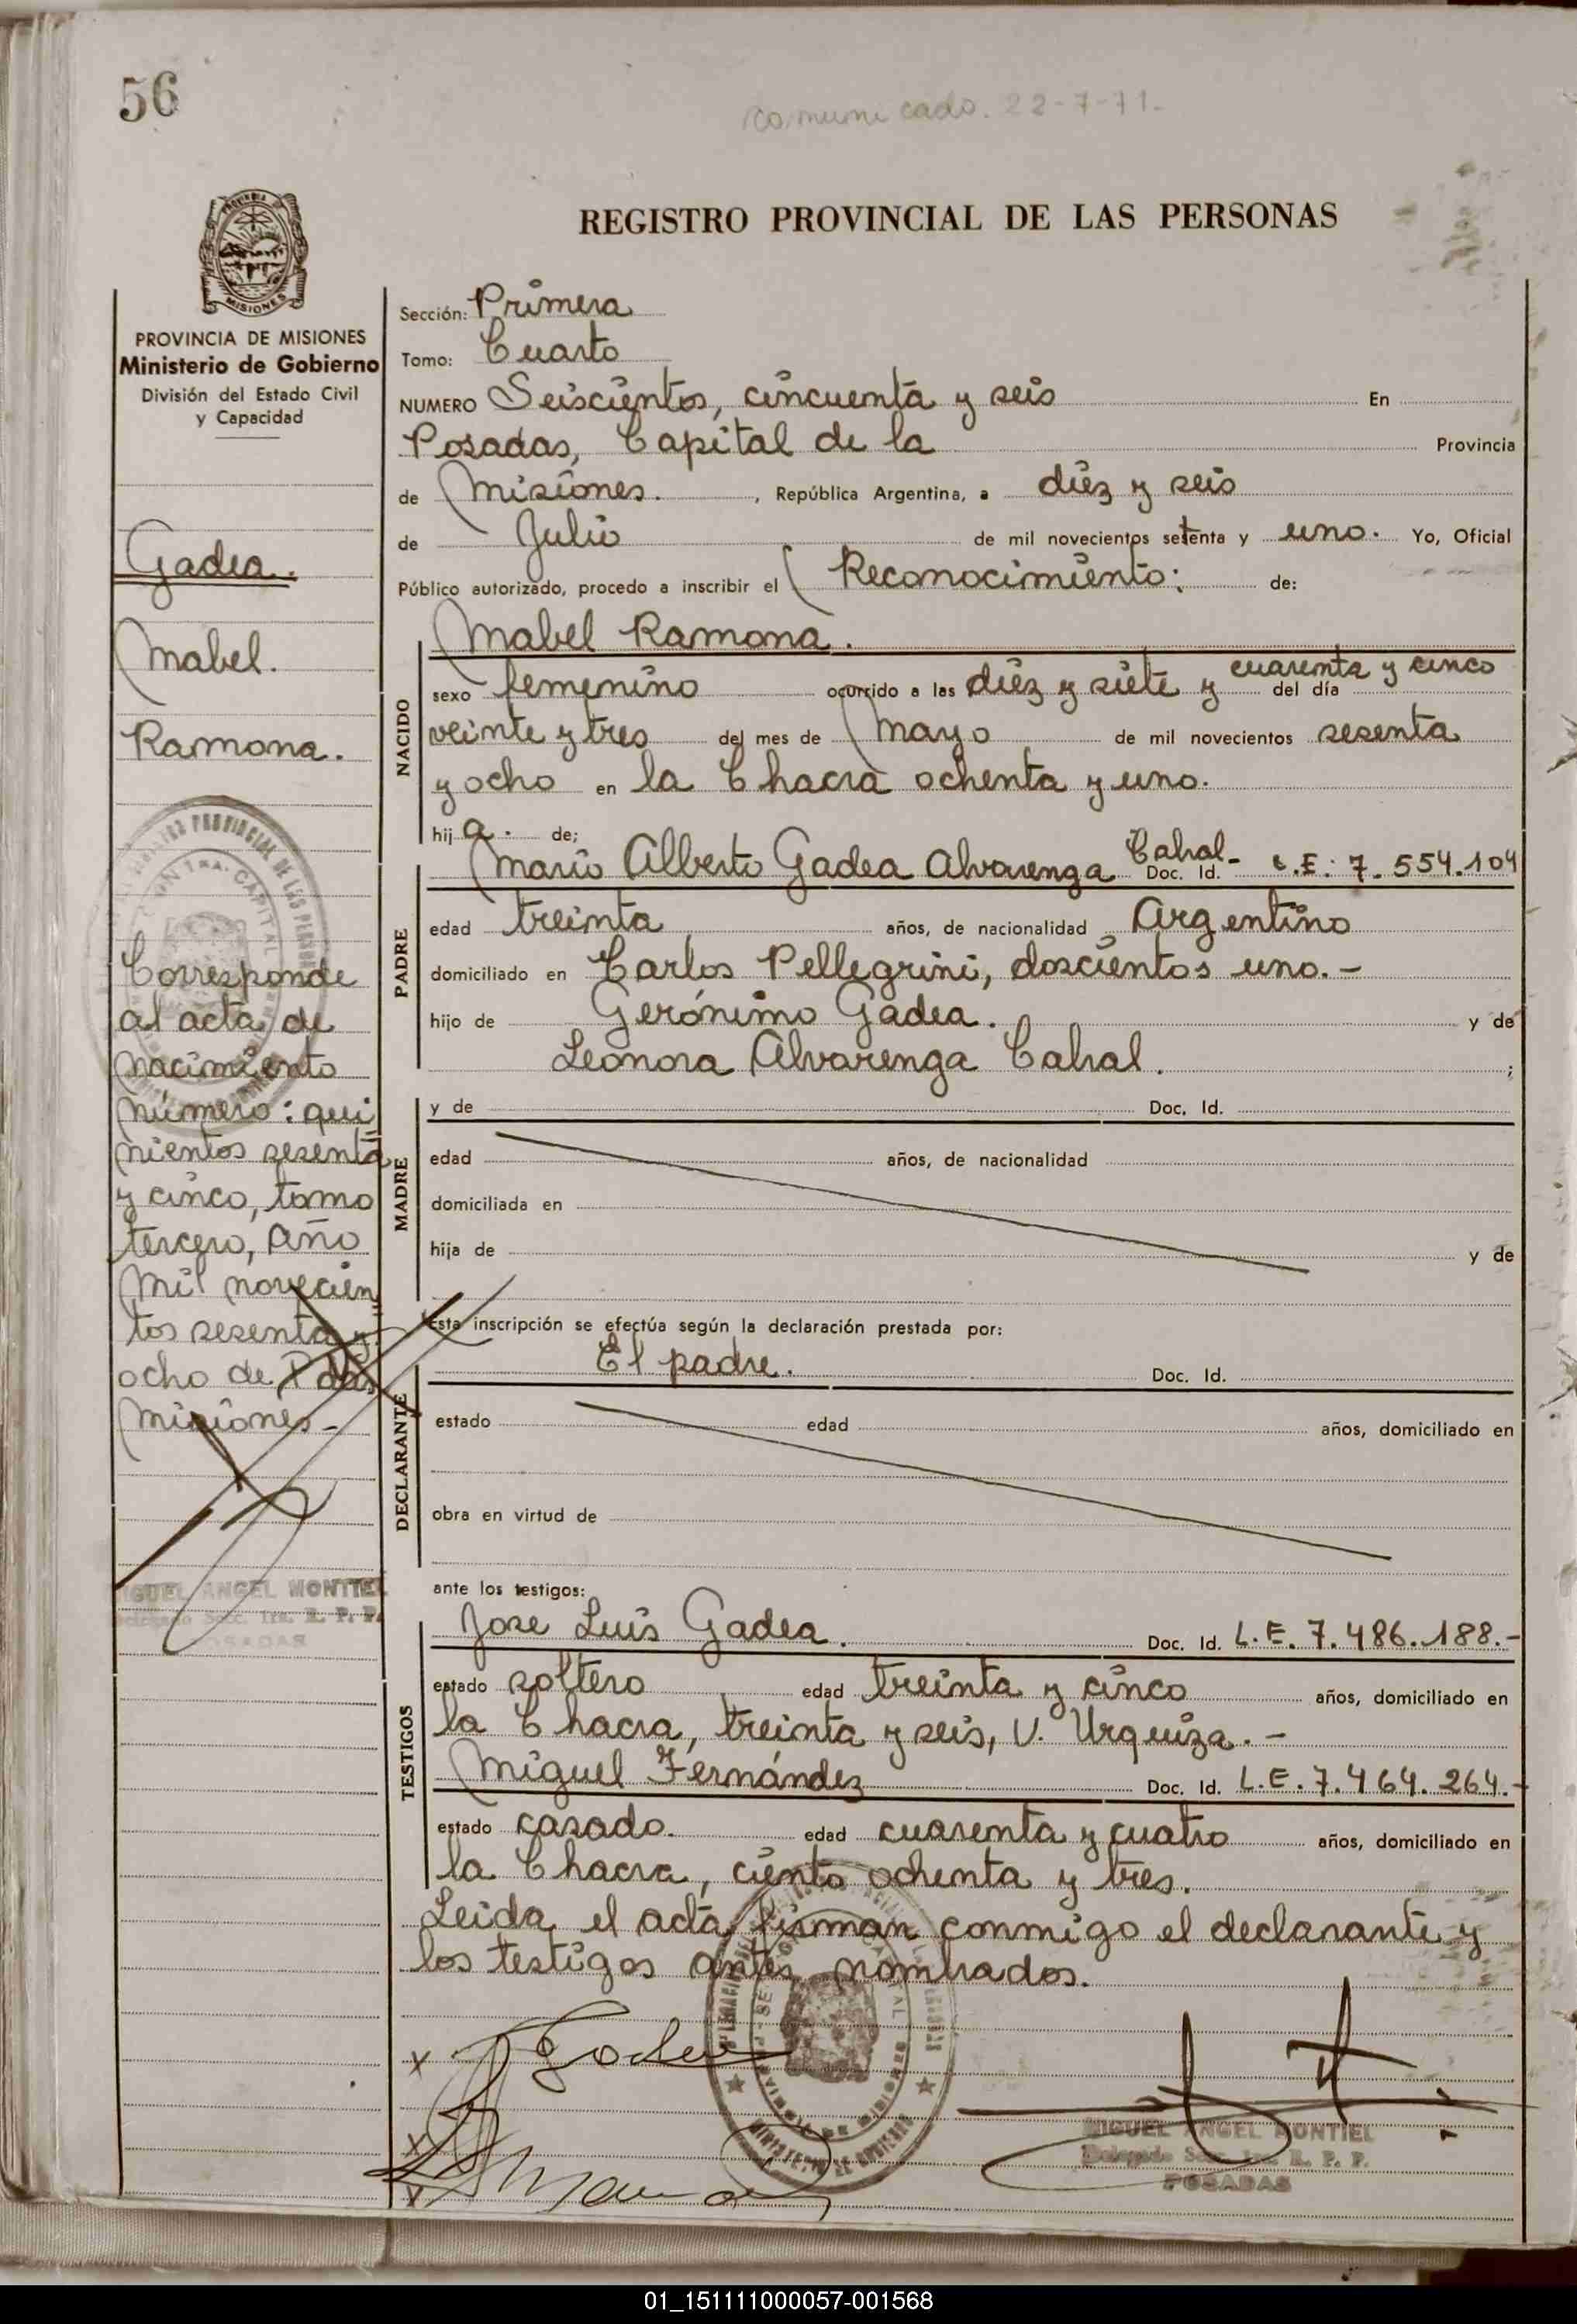 56
comunicado. 22-7-71.-
REGISTRO PROVINCIAL DE LAS PERSONAS
PROVINCIA DE MISIONES
Ministerio de Gobierno
División del Estado Civil
y Capacidad
Gadea.
Mabel.
Ramona.
Corresponde
al acta de
nacimiento
número: qui
nientos sesenta
y cinco, tomo
tercero, Año
mil novecien
tos sesenta y
ocho de Pdas
Misiones-
MIGUEL ANGEL MONTIEL
Delegado Secc. 1ra. R. P. P.
POSADAS
Sección: Primera
Tomo: Cuarto
NUMERO Seiscientos, cincuenta y seis En
Posadas, Capital de la Provincia
de Misiones. , República Argentina, a diez y seis
de Julio de mil novecientos setenta y uno. Yo, Oficial
Público autorizado, procedo a inscribir el Reconocimiento: de:
NACIDO
Mabel Ramona.
sexo femenino ocurrido a las diez y siete y cuarenta y cinco del día
veinte y tres del mes de mayo de mil novecientos sesenta
y ocho en la Chacra ochenta y uno.
hij a. de;
PADRE
Mario Alberto Gadea Alvarenga Cabral- Doc. Id. L.E: 7.554.104
edad treinta años, de nacionalidad Argentino
domiciliado en Carlos Pellegrini, doscientos uno.-
hijo de Gerónimo Gadea. y de
Leonora Alvarenga Cabral. ;
MADRE
y de Doc. Id.
edad años, de nacionalidad
domiciliada en
hija de y de
Esta inscripción se efectúa según la declaración prestada por:
DECLARANTE
El padre. Doc. Id.
estado edad años, domiciliado en
obra en virtud de
ante los testigos:
TESTIGOS
Jose Luis Gadea. Doc. Id. L.E. 7.486.188.-
estado soltero edad treinta y cinco años, domiciliado en
la Chacra, treinta y seis, V. Urquiza.-
Miguel Fernández Doc. Id. L.E. 7.464.264.-
estado casado. edad cuarenta y cuatro años, domiciliado en
la Chacra, ciento ochenta y tres.
Leida el acta firman conmigo el declarante y
los testigos antes nombrados.
MIGUEL ANGEL MONTIEL
Delegado Secc. 1ra. R. P. P.
POSADAS
01_151111000057-001568